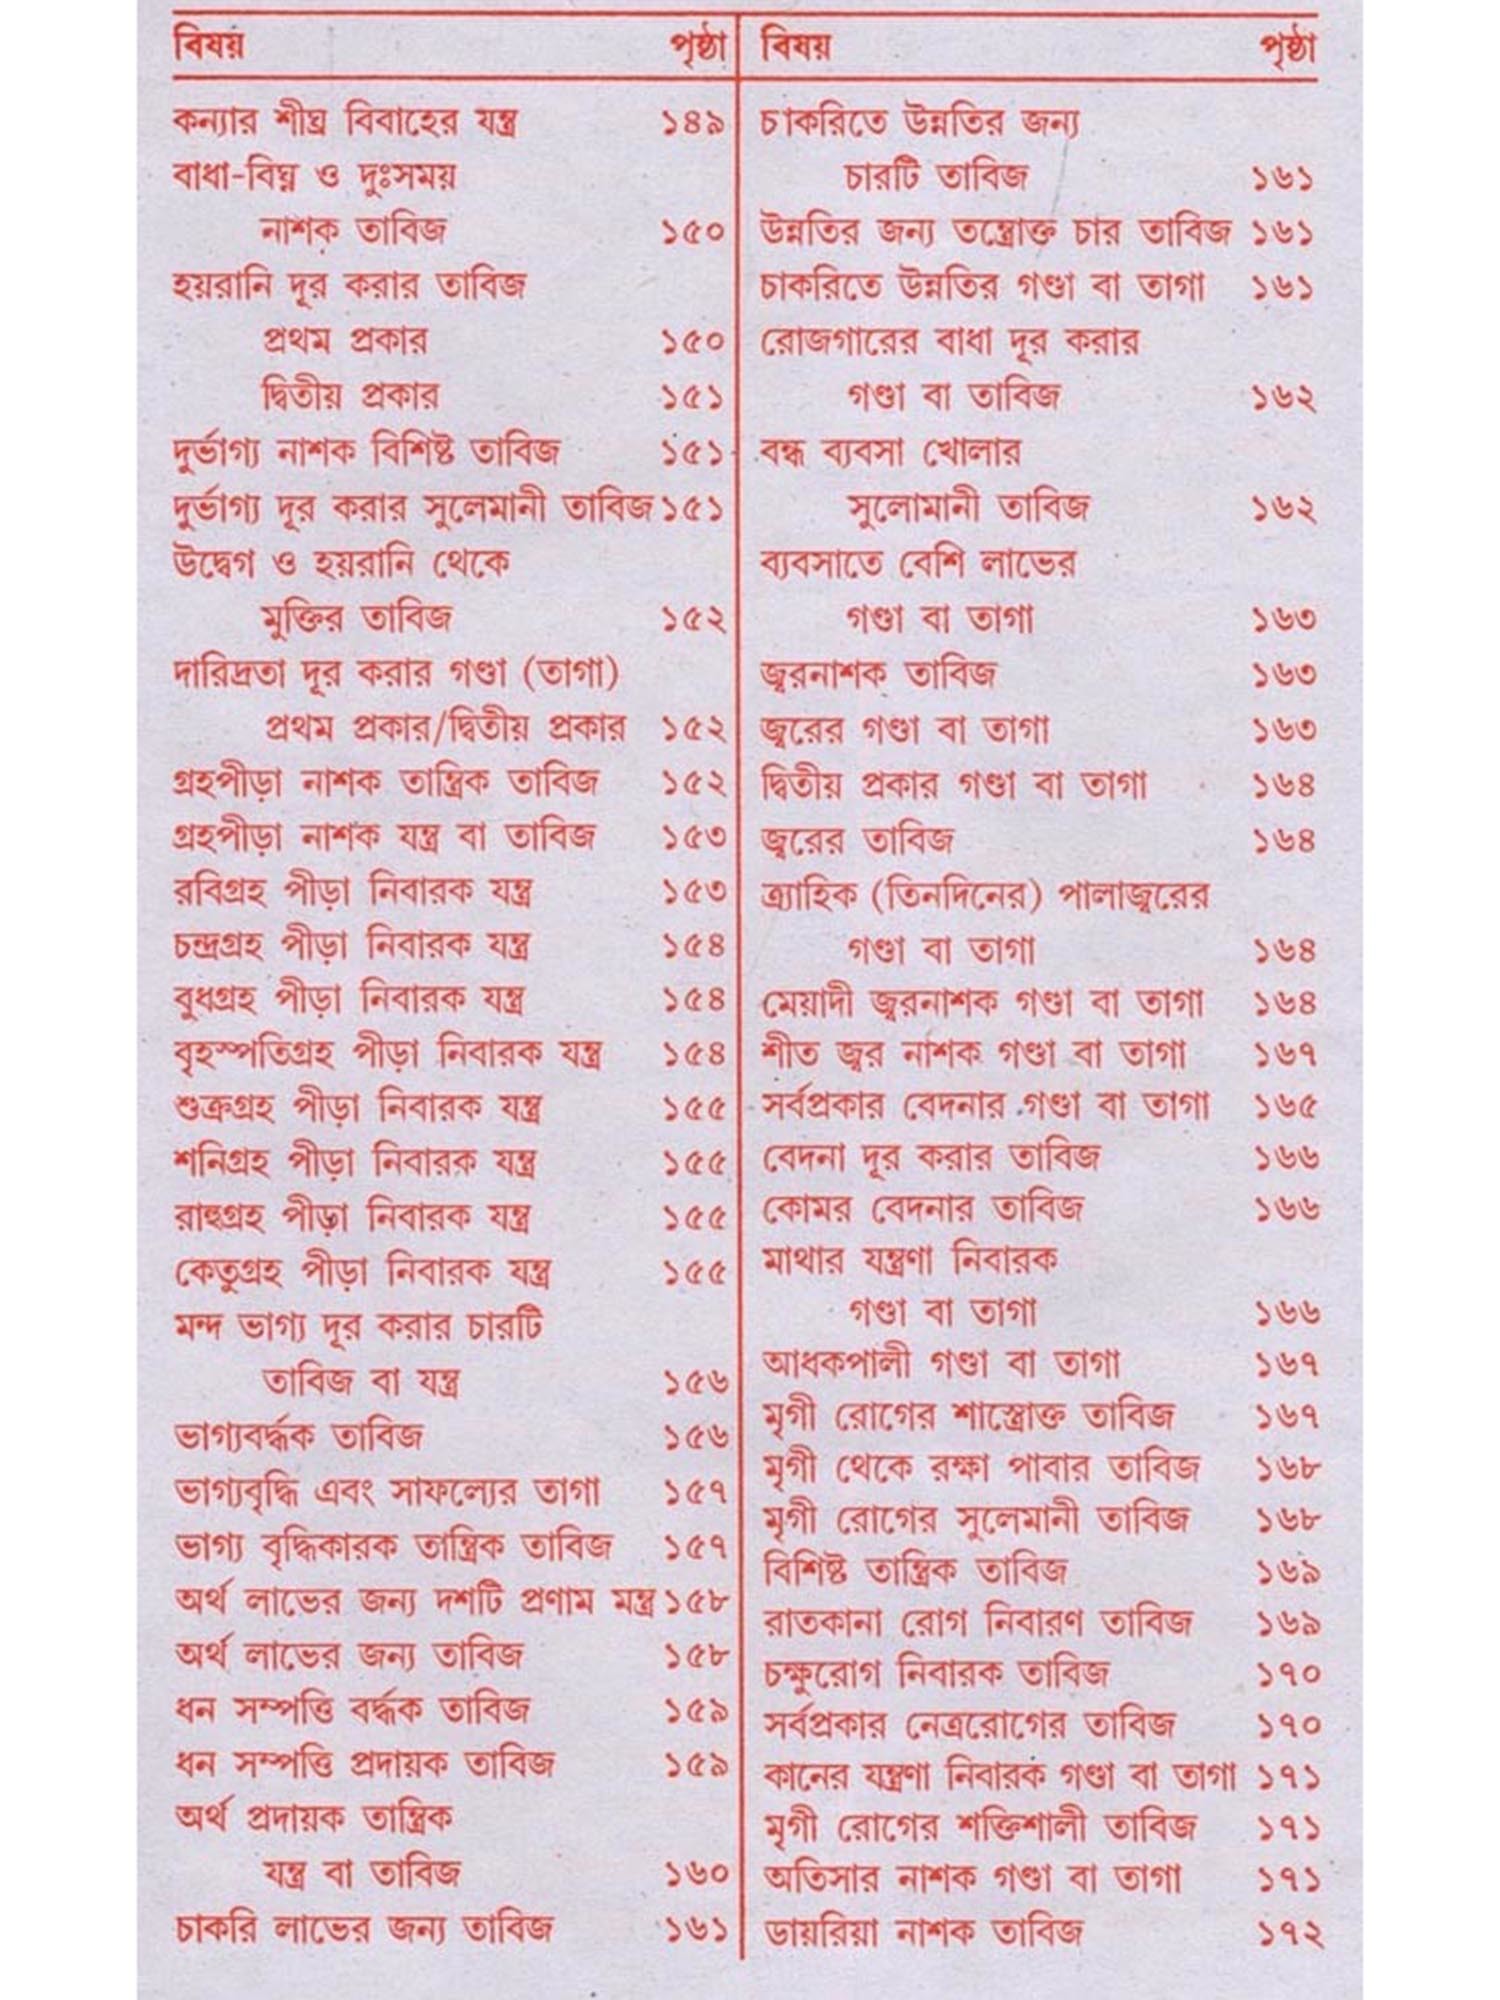 বিষয় পৃষ্ঠা
কন্যার শীঘ্র বিবাহের যন্ত্র ১৪৯
বাধা-বিঘ্ন ও দুঃসময়
নাশক তাবিজ ১৫০
হয়রানি দূর করার তাবিজ
প্রথম প্রকার ১৫০
দ্বিতীয় প্রকার ১৫১
দুর্ভাগ্য নাশক বিশিষ্ট তাবিজ ১৫১
দুর্ভাগ্য দূর করার সুলেমানী তাবিজ ১৫১
উদ্বেগ ও হয়রানি থেকে
মুক্তির তাবিজ ১৫২
দারিদ্রতা দূর করার গণ্ডা (তাগা)
প্রথম প্রকার/দ্বিতীয় প্রকার ১৫২
গ্রহপীড়া নাশক তান্ত্রিক তাবিজ ১৫২
গ্রহপীড়া নাশক যন্ত্র বা তাবিজ ১৫৩
রবিগ্রহ পীড়া নিবারক যন্ত্র ১৫৩
চন্দ্রগ্রহ পীড়া নিবারক যন্ত্র ১৫৪
বুধগ্রহ পীড়া নিবারক যন্ত্র ১৫৪
বৃহস্পতিগ্রহ পীড়া নিবারক যন্ত্র ১৫৪
শুক্রগ্রহ পীড়া নিবারক যন্ত্র ১৫৫
শনিগ্রহ পীড়া নিবারক যন্ত্র ১৫৫
রাহুগ্রহ পীড়া নিবারক যন্ত্র ১৫৫
কেতুগ্রহ পীড়া নিবারক যন্ত্র ১৫৫
মন্দ ভাগ্য দূর করার চারটি
তাবিজ বা যন্ত্র ১৫৬
ভাগ্যবর্দ্ধক তাবিজ ১৫৬
ভাগ্যবৃদ্ধি এবং সাফল্যের তাগা ১৫৭
ভাগ্য বৃদ্ধিকারক তান্ত্রিক তাবিজ ১৫৭
অর্থ লাভের জন্য দশটি প্রণাম মন্ত্র ১৫৮
অর্থ লাভের জন্য তাবিজ ১৫৮
ধন সম্পত্তি বর্দ্ধক তাবিজ ১৫৯
ধন সম্পত্তি প্রদায়ক তাবিজ ১৫৯
অর্থ প্রদায়ক তান্ত্রিক
যন্ত্র বা তাবিজ ১৬০
চাকরি লাভের জন্য তাবিজ ১৬১
বিষয় পৃষ্ঠা
চাকরিতে উন্নতির জন্য
চারটি তাবিজ ১৬১
উন্নতির জন্য তন্ত্রোক্ত চার তাবিজ ১৬১
চাকরিতে উন্নতির গণ্ডা বা তাগা ১৬১
রোজগারের বাধা দূর করার
গণ্ডা বা তাবিজ ১৬২
বন্ধ ব্যবসা খোলার
সুলোমানী তাবিজ ১৬২
ব্যবসাতে বেশি লাভের
গণ্ডা বা তাগা ১৬৩
জ্বরনাশক তাবিজ ১৬৩
জ্বরের গণ্ডা বা তাগা ১৬৩
দ্বিতীয় প্রকার গণ্ডা বা তাগা ১৬৪
জ্বরের তাবিজ ১৬৪
ত্র্যাহিক (তিনদিনের) পালাজ্বরের
গণ্ডা বা তাগা ১৬৪
মেয়াদী জ্বরনাশক গণ্ডা বা তাগা ১৬৪
শীত জ্বর নাশক গণ্ডা বা তাগা ১৬৭
সর্বপ্রকার বেদনার গণ্ডা বা তাগা ১৬৫
বেদনা দূর করার তাবিজ ১৬৬
কোমর বেদনার তাবিজ ১৬৬
মাথার যন্ত্রণা নিবারক
গণ্ডা বা তাগা ১৬৬
আধকপালী গণ্ডা বা তাগা ১৬৭
মৃগী রোগের শাস্ত্রোক্ত তাবিজ ১৬৭
মৃগী থেকে রক্ষা পাবার তাবিজ ১৬৮
মৃগী রোগের সুলেমানী তাবিজ ১৬৮
বিশিষ্ট তান্ত্রিক তাবিজ ১৬৯
রাতকানা রোগ নিবারণ তাবিজ ১৬৯
চক্ষুরোগ নিবারক তাবিজ ১৭০
সর্বপ্রকার নেত্ররোগের তাবিজ ১৭০
কানের যন্ত্রণা নিবারক গণ্ডা বা তাগা ১৭১
মৃগী রোগের শক্তিশালী তাবিজ ১৭১
অতিসার নাশক গণ্ডা বা তাগা ১৭১
ডায়রিয়া নাশক তাবিজ ১৭২